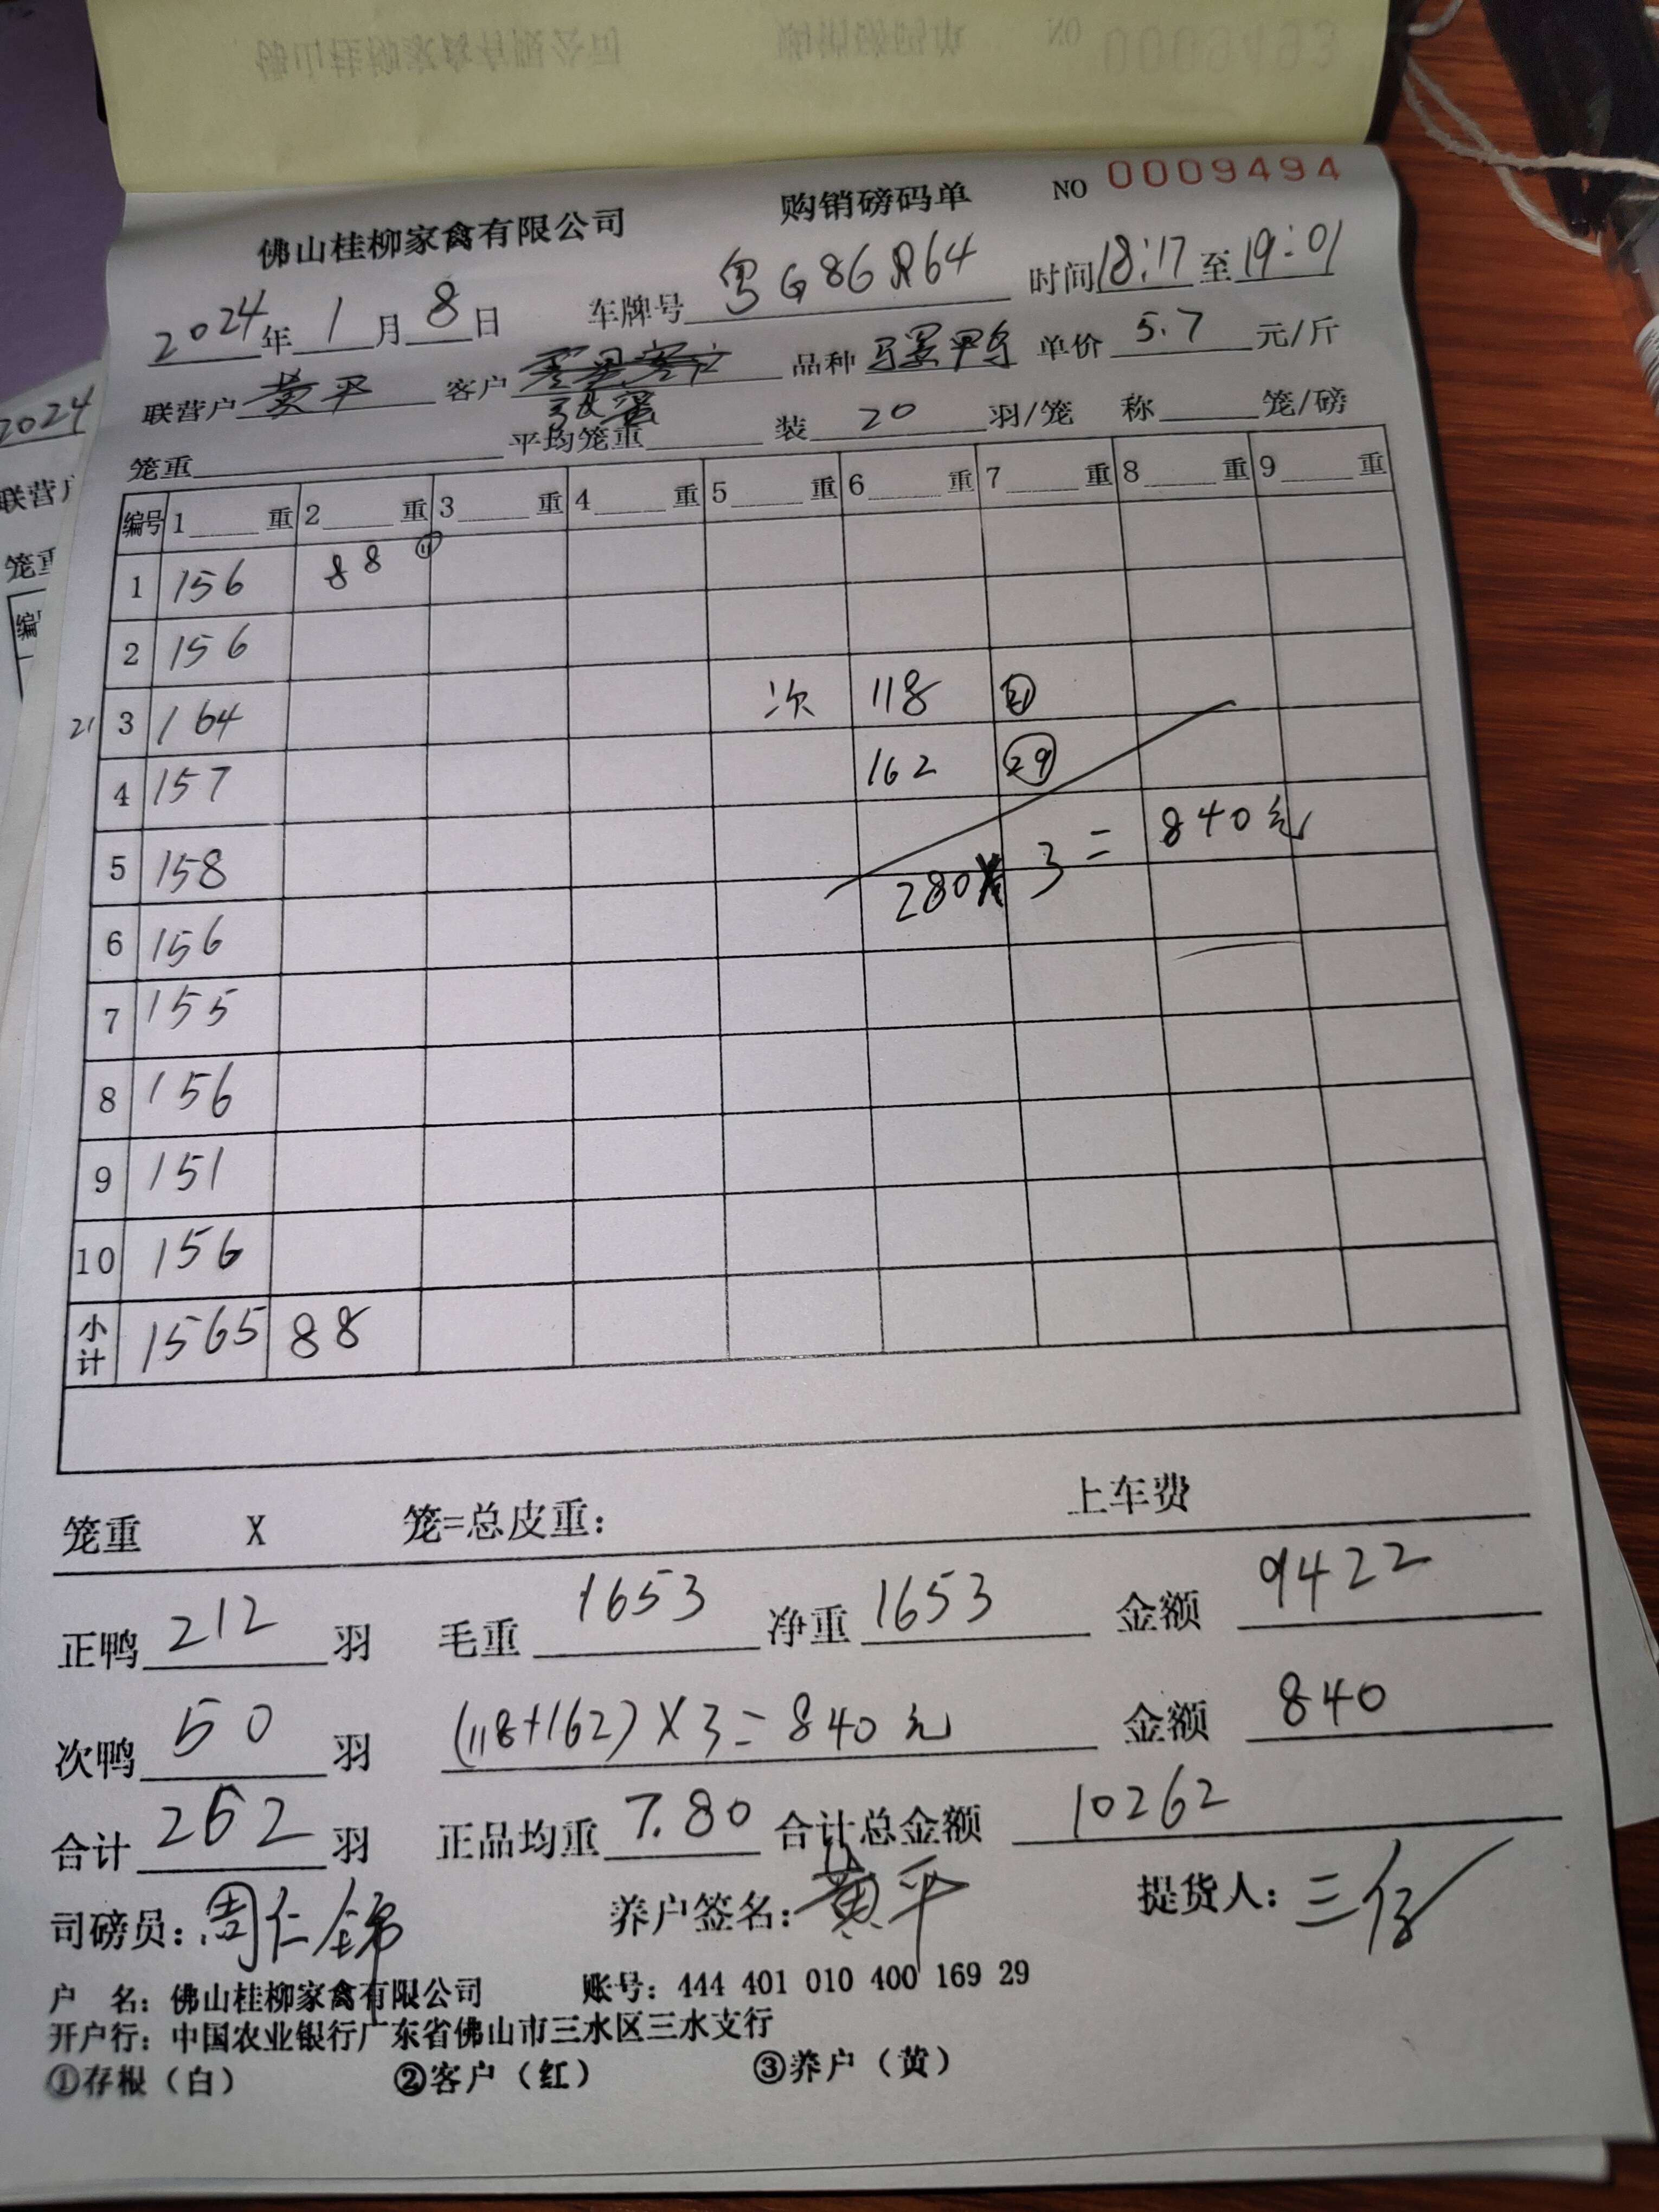 NO 0009493
佛山桂柳家禽有限公司 购销磅码单 NO 0009494
2024年 1 月 8 日 车牌号 粤G86R64 时间 18:17 至 19:01
联营户 黄平 客户 品种 单价 5.7 元/斤
笼重 平均笼重 装 20 羽/笼 称 笼/磅
编号 1 重 2 重 3 重 4 重 5 重 6 重 7 重 8 重 9 重
1 156 88 ⑪
2 156
21 3 164 次 118 ㉑
4 157 162 ㉙
5 158 280×3=840元
6 156
7 155
8 156
9 151
10 156
小计 1565 88
笼重 X 笼=总皮重: 上车费
正鸭 212 羽 毛重 1653 净重 1653 金额 9422
次鸭 50 羽 (118+162)×3=840元 金额 840
合计 262 羽 正品均重 7.80 合计总金额 10262
司磅员: 周仁锦 养户签名: 黄平 提货人: 三仔
户 名: 佛山桂柳家禽有限公司 账号: 444 401 010 400 169 29
开户行: 中国农业银行广东省佛山市三水区三水支行
①存根（白） ②客户（红） ③养户（黄）
2024
联营户
笼重
编